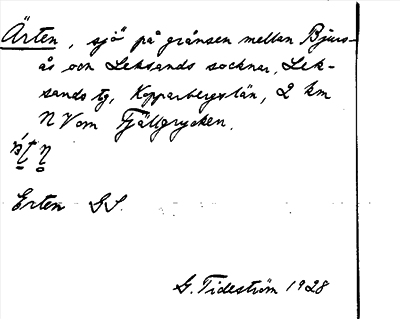 Ärten, sjö på gränsen mellan Bjurs-
ås och Leksands socknar, Lek-
sands tg, Kopparbergs län, 2 km
N V om Fjällgrycken.
Erten GS.
G. Tideström 1928